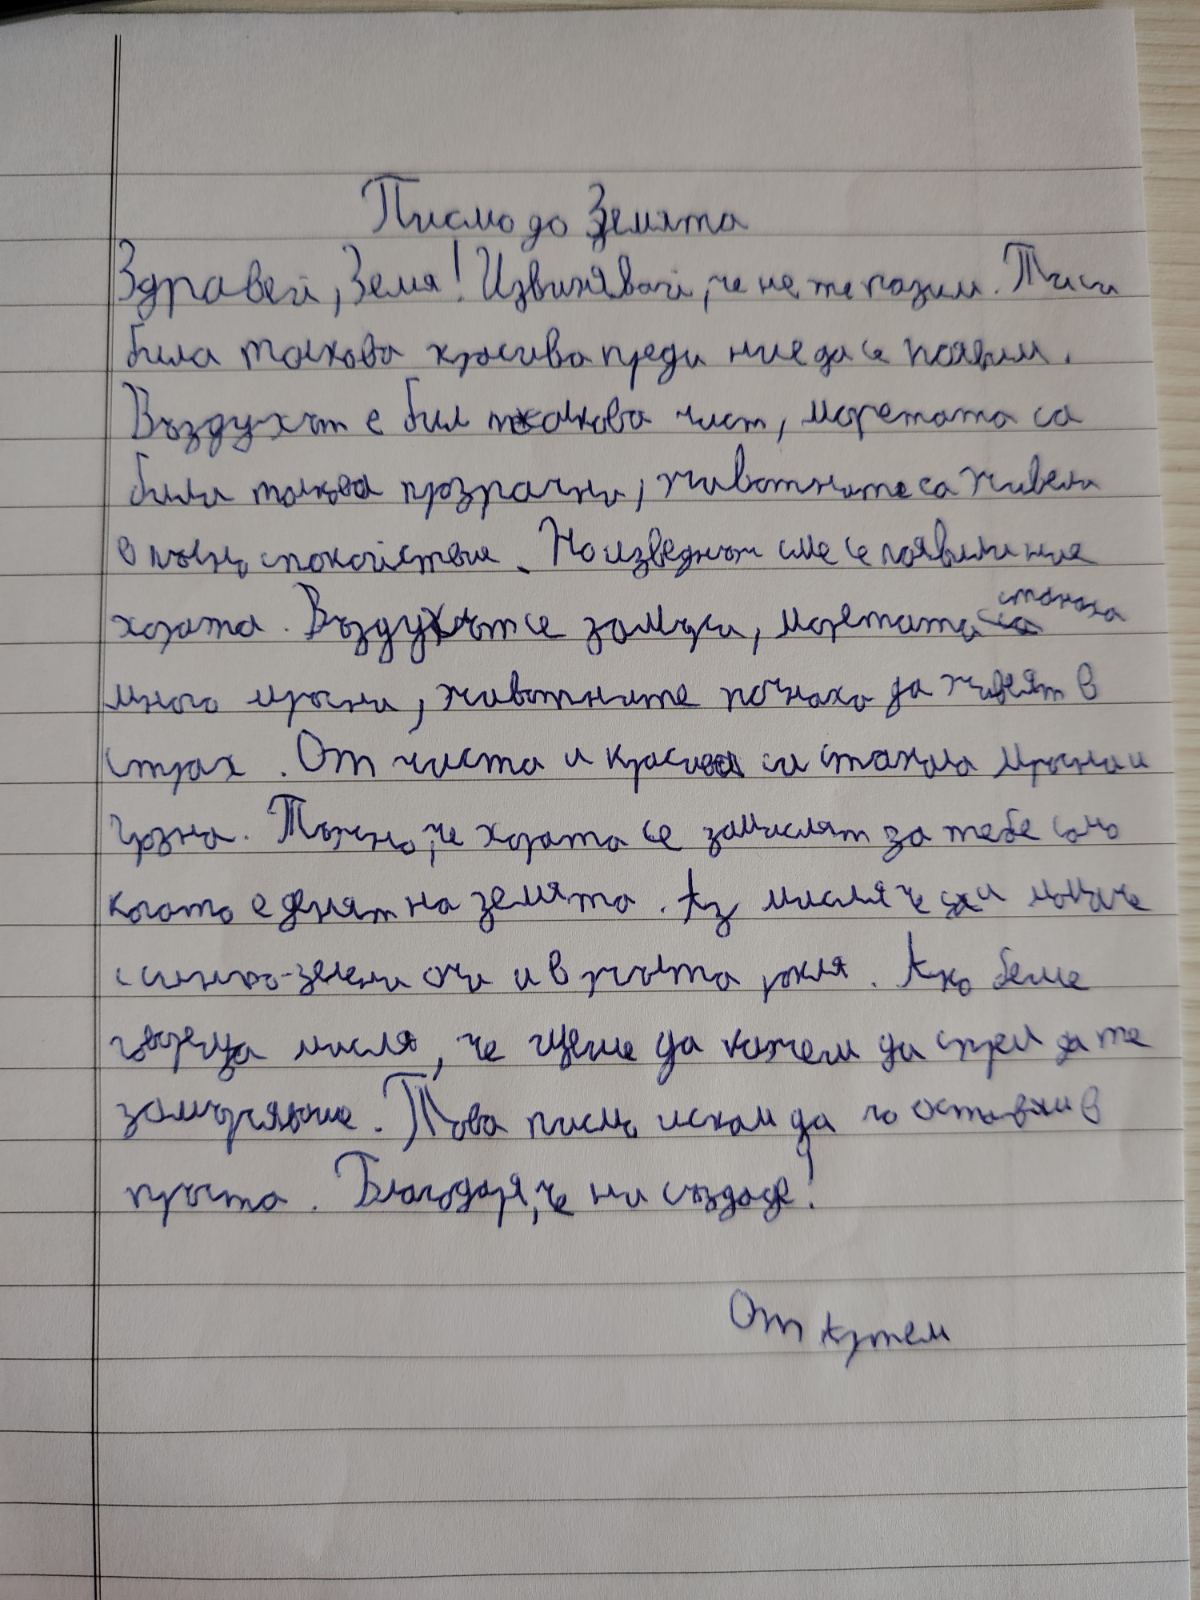 Писмо до Земята
Здравей, Земя! Извинявай, че не те пазим. Ти си
била толкова красива преди ние да се появим.
Въздухът е бил толкова чист, моретата са
били толкова прозрачни, животните са живели
в пълно спокойствие. Но изведнъж сме се появили ние
хората. Въздухът се замърси, моретата станаха
много мръсни, животните почнаха да живеят в
страх. От чиста и красива си станала мръсна и
грозна. Тъжно, че хората се замислят за тебе само
когато е денят на земята. Аз мисля че си момиче
с синьо-зелени очи и в жълта рокля. Ако беше
говореща мисля, че щеше да кажеш да спрем да те
замърсяваме. Това писмо искам да го оставим в
пръста. Благодаря, че ни създаде!
От Артем